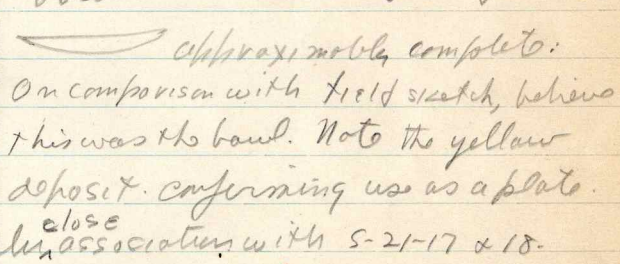 approximately complete:
On comparison with field sketch, believe
this was the bowl. Note the yellow
deposit. confirming use as a plate.
close
In association with S-21-17 & 18.